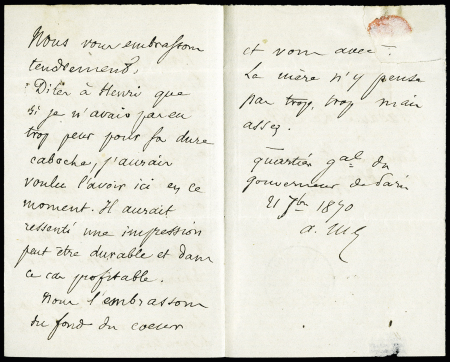 Nous vous embrassons
tendrement.
Dites à Henri que
si je n'avais pas eu
trop peur pour sa dure
caboche, j'aurais
voulu l'avoir ici en ce
moment. Il aurait
ressenti une impression
peut être durable et dans
ce cas profitable.
Nous l'embrassons
du fond du coeur
et vous avec.
La mère n'y pense
pas trop, trop mais
assez.
quartier gal du
gouverneur de Paris
21 7bre 1870